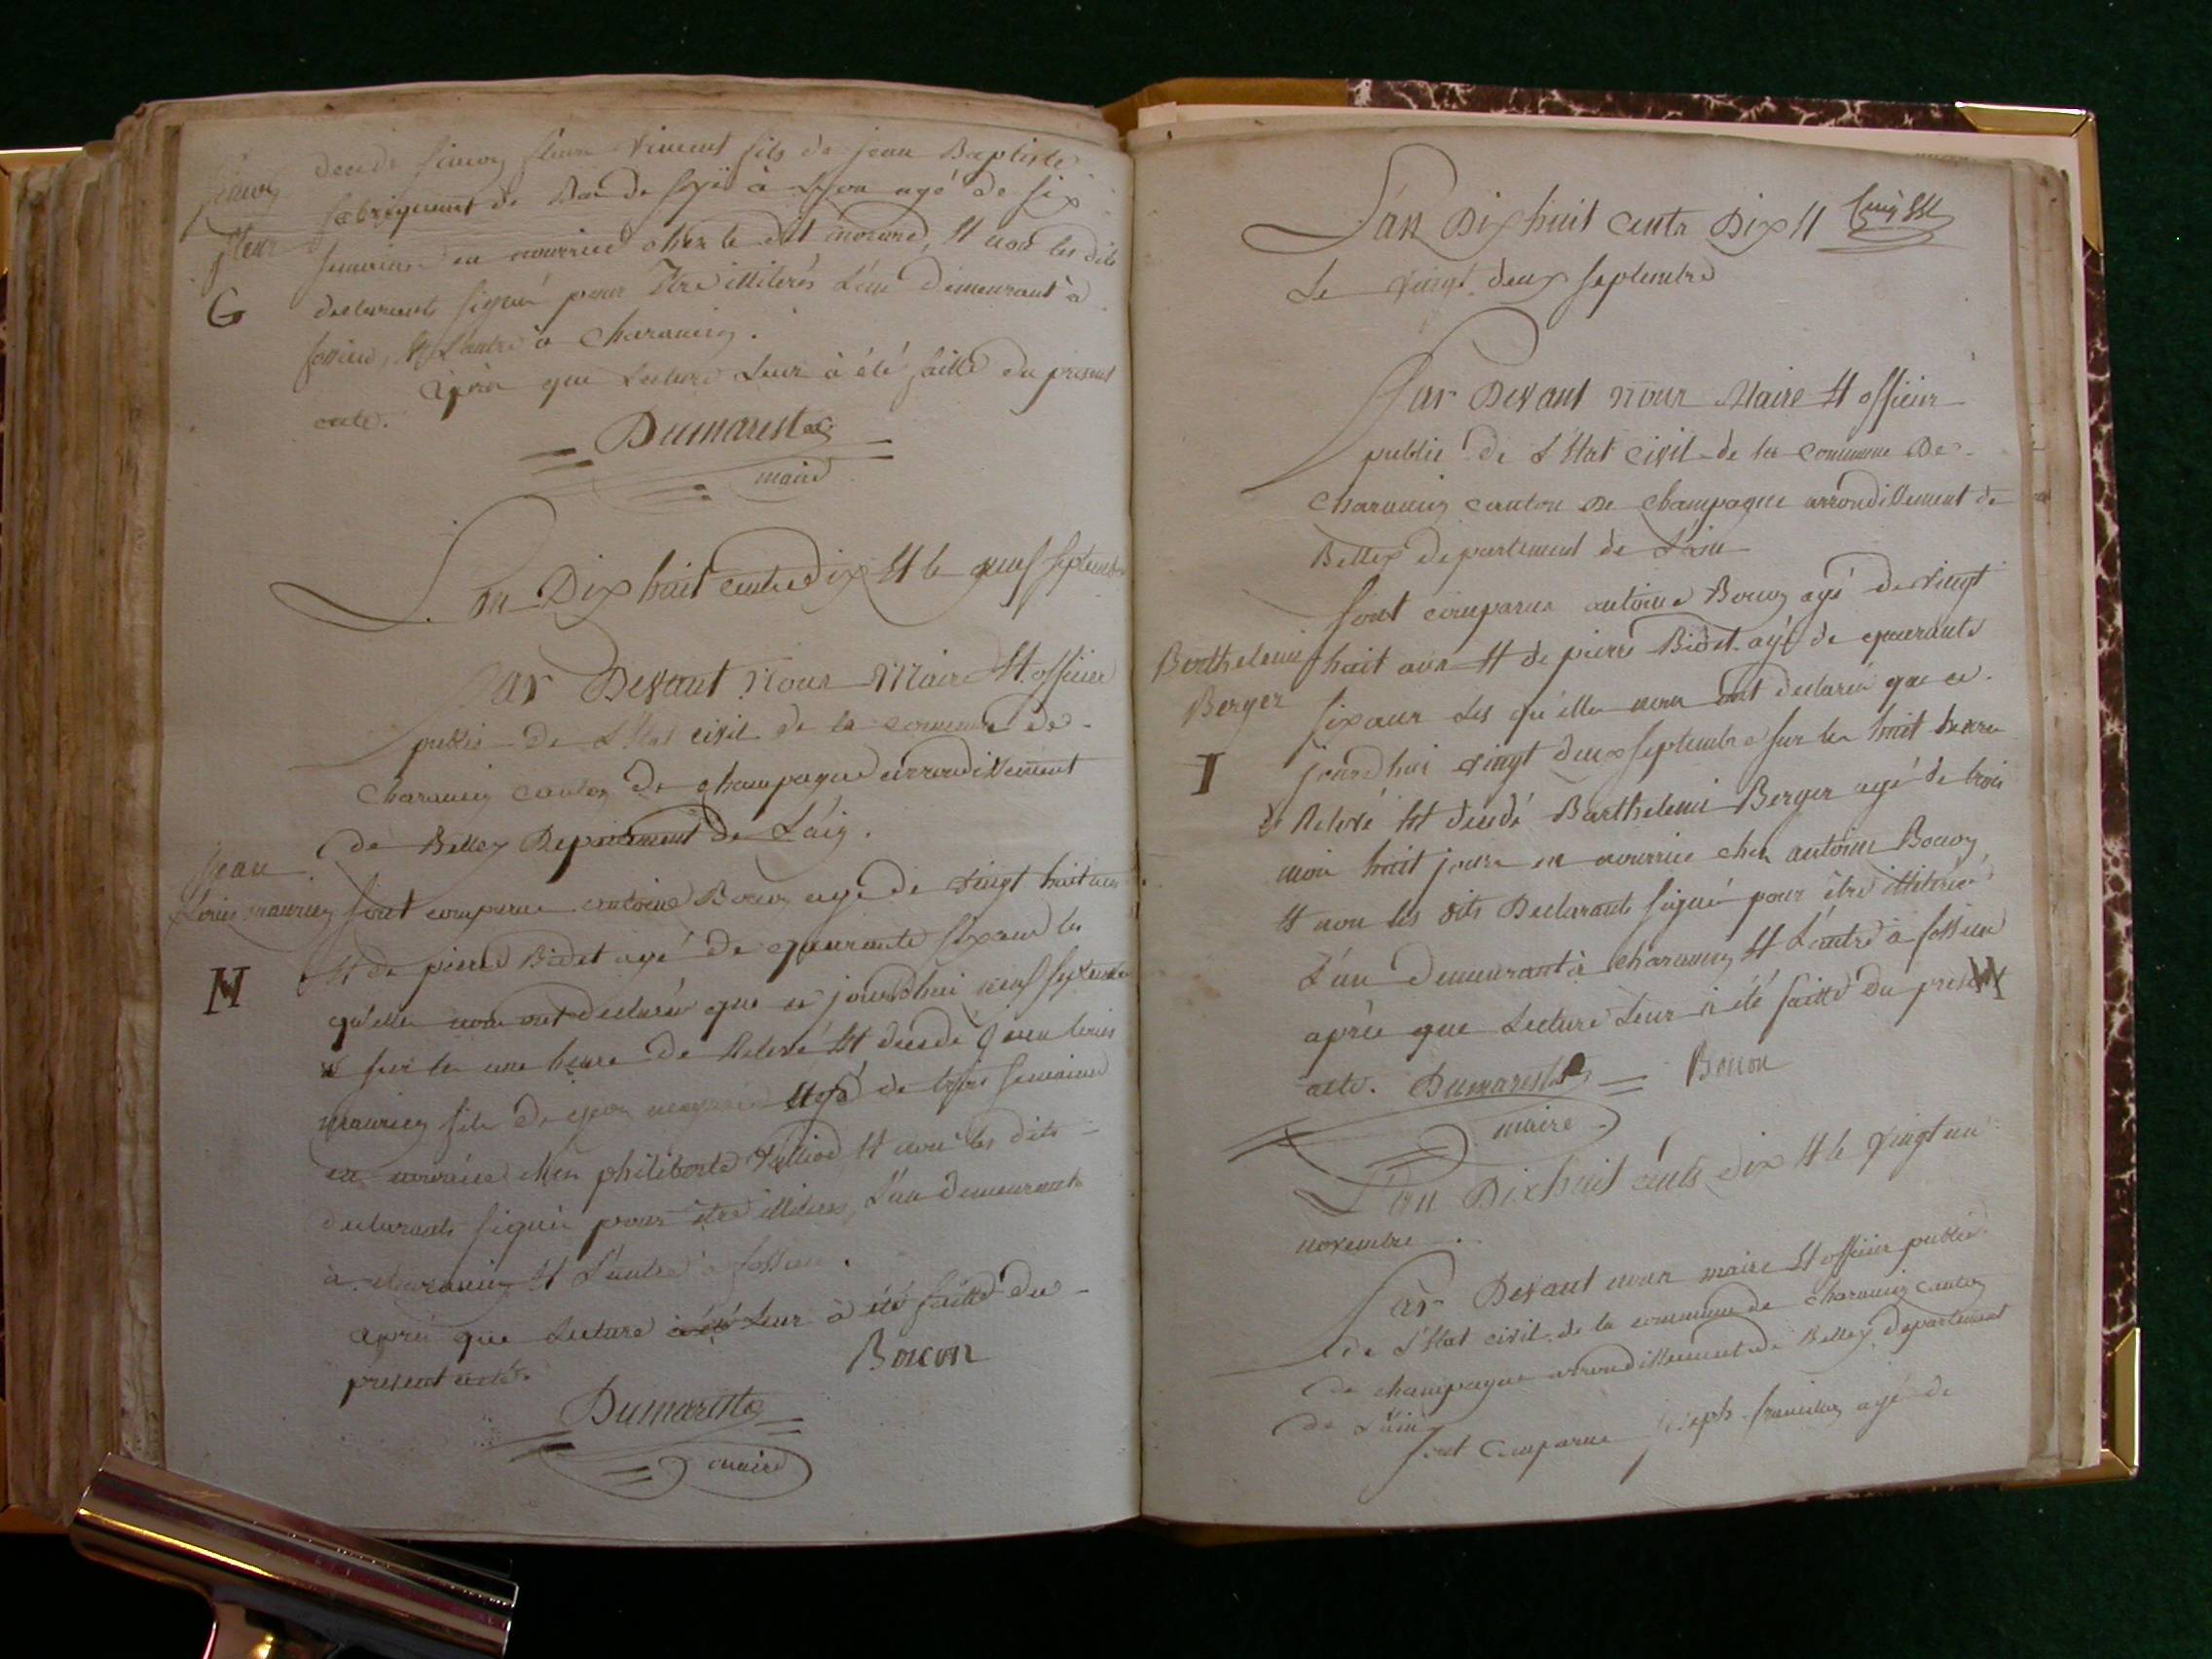 decede simon fleur vincent fils de jean Baptiste
simon
fleur
G
fabriquant de Bas de soye à Lyon agé de six
semaines en nourrice chez le dit, et non les dits
declarants signé pour Etre illiterés L'un demeurant à
fossieu, et L'autre à Charancin.
Après que Lecture Leur à été faitte du present
acte.
Dumarest
maire
L'an Dix huit cents dix et le neuf septembre
Par Devant nous Maire et officier
public de L'Etat civil de la commune de
Charancin canton de champagne arrondissement
de Belley Departement de L'ain.
jean
Louis maurien
N
sont comparus antoine Bocon agé de vingt huit ans
et de pierre Bidet agé de quarante six ans les
quelles nous ont declarés que ce jourdhui neuf septembre
sur les une heure de Relevé est decedé jean louis
maurien fils de agé de trois semaines
en nourrice chez philiberte et non les dits
declarants signés pour être illiterés, L'un demeurant
à charancin et L'autre à fossieu.
après que Lecture à été Leur à été faitte du
present acte.
Bocon
Dumarest
maire
L'an Dix huit cents Dix et
Le vingt deux septembre
Par Devant nous Maire et officier
public de L'Etat civil de la commune De
Charancin canton De Champagne arrondissement de
Belley departement de L'ain
sont comparus antoine Bocon agé de vingt
Berthelemi
Berger
I
huit ans et de pierre Bidet agé de quarante
six ans Les quelles nous ont declarés que ce
jourdhui vingt deux septembre sur les huit heures
de Relevé est decedé Barthelemi Berger agé de trois
mois huit jours en nourrice chez antoine Bocon
et non les dits Declarants signé pour être illiterés
L'un demeurant à charancin et L'autre à fossieu
après que Lecture Leur à été faitte du present
acte. Dumarest Bocon
maire
L'an Dix huit cents dix et le vingt un
novembre.
Par Devant nous maire et officier public
de L'Etat civil de la commune de charancin canton
de champagne arrondissement de Belley departement
de L'ain
sont comparus joseph agé de